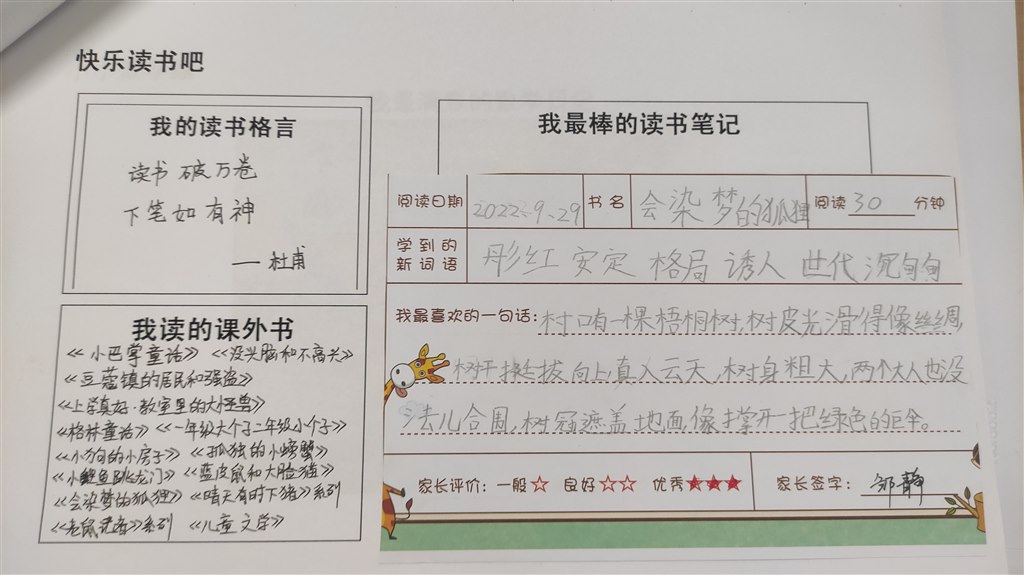 快乐读书吧
我的读书格言
读书破万卷
下笔如有神
——杜甫
我读的课外书
《小巴掌童话》 《没头脑和不高兴》
《豆蔻镇的居民和强盗》
《上学真好·教室里的大怪兽》
《格林童话》 《一年级大个子二年级小个子》
《小狗的小房子》 《孤独的小螃蟹》
《小鲤鱼跳龙门》 《蓝皮鼠和大脸猫》
《会染梦的狐狸》 《晴天有时下猪》系列
《老鼠记者》系列 《儿童文学》
我最棒的读书笔记
阅读日期 2022.9.29 书名 会染梦的狐狸 阅读 30 分钟
学到的新词语 彤红 安定 格局 诱人 世代 沉甸甸
我最喜欢的一句话:村口有一棵梧桐树,树皮光滑得像丝绸,
树干挺拔向上,直入云天,树身粗大,两个大人也没
法儿合围,树冠遮盖地面,像撑开一把绿色的巨伞。
家长评价:一般☆ 良好☆☆ 优秀★★★ 家长签字:邹静